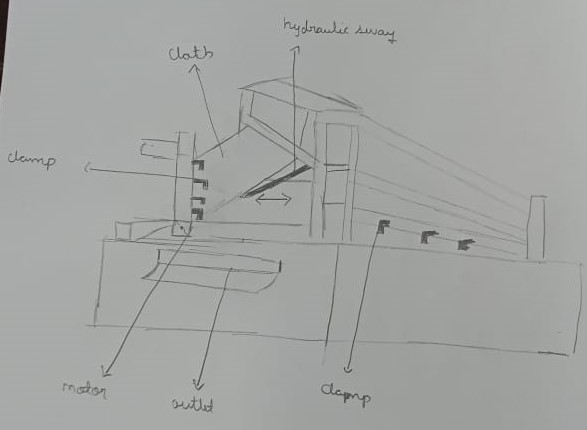 hydraulic sway
cloth
clamp
motor
outlet
clamp